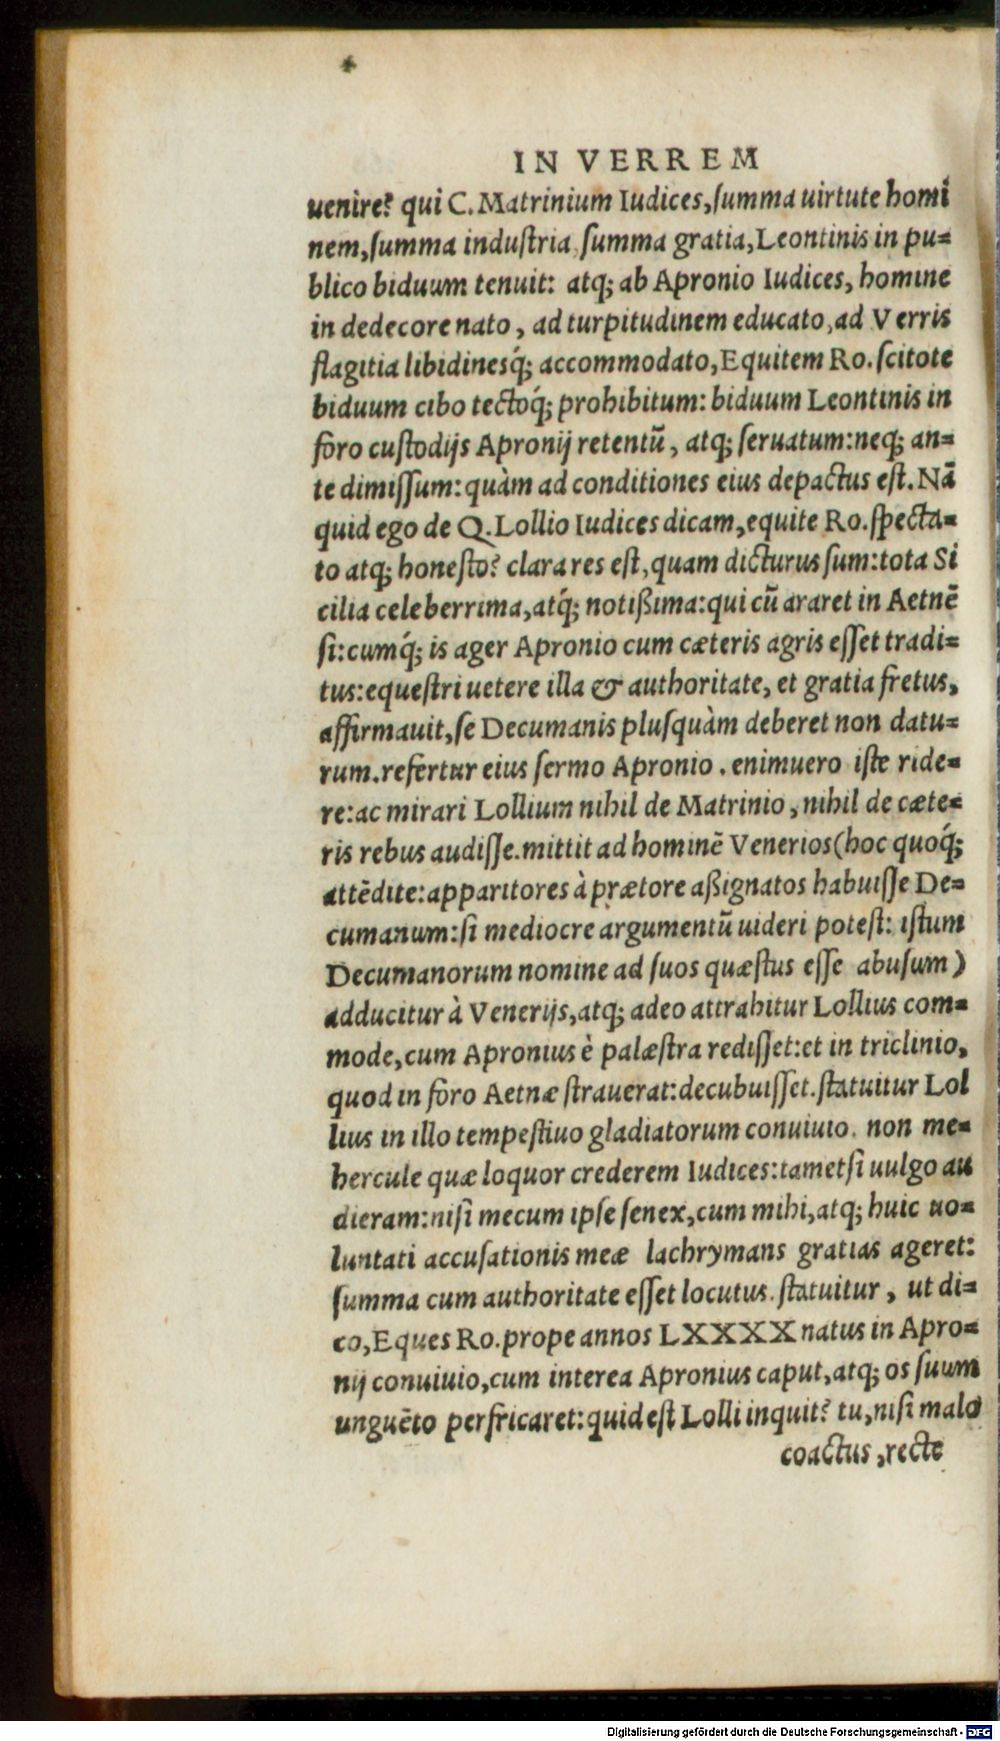 IN VERREM
uenire? qui C. Matrinium Iudices, ſumma uirtute homi
nem, ſumma induſtria, ſumma gratia, Leontinis in pu=
blico biduum tenuit: atq; ab Apronio Iudices, homine
in dedecore nato, ad turpitudinem educato, ad Verris
flagitia libidinesq́; accommodato, Equitem Ro. ſcitote
biduum cibo tectoq́; prohibitum: biduum Leontinis in
foro cuſtodijs Apronij retentũ, atq; ſeruatum: neq; an=
te dimiſſum: quàm ad conditiones eius depactus eſt. Nã
quid ego de Q. Lollio Iudices dicam, equite Ro. ſpecta=
to atq; honeſto? clara res eſt, quam dicturus ſum: tota Si
cilia celeberrima, atq́; notißima: qui cũ araret in Aetnẽ
ſi: cumq́; is ager Apronio cum cæteris agris eſſet tradi=
tus: equeſtri uetere illa & authoritate, et gratia fretus,
affirmauit, ſe Decumanis pluſquàm deberet non datu=
rum. refertur eius ſermo Apronio. enimuero iſte ride=
re: ac mirari Lollium nihil de Matrinio, nihil de cæte=
ris rebus audiſſe. mittit ad hominẽ Venerios (hoc quoq́;
attẽdite: apparitores à prætore aßignatos habuiſſe De=
cumanum: ſi mediocre argumentũ uideri poteſt: iſtum
Decumanorum nomine ad ſuos quæſtus eſſe abuſum)
adducitur à Venerijs, atq; adeo attrahitur Lollius com=
mode, cum Apronius è palæſtra rediſſet: et in triclinio,
quod in foro Aetnæ ſtrauerat: decubuiſſet. ſtatuitur Lol
lius in illo tempeſtiuo gladiatorum conuiuio. non me=
hercule quæ loquor crederem Iudices: tametſi uulgo au
dieram: niſi mecum ipſe ſenex, cum mihi, atq; huic uo=
luntati accuſationis meæ lachrymans gratias ageret:
ſumma cum authoritate eſſet locutus. ſtatuitur, ut di=
co, Eques Ro. prope annos LXXXX natus in Apro=
nij conuiuio, cum interea Apronius caput, atq; os ſuum
unguẽto perfricaret: quid eſt Lolli inquit? tu, niſi malo
coactus, recte
Digitalisierung gefördert durch die Deutsche Forschungsgemeinschaft - DFG